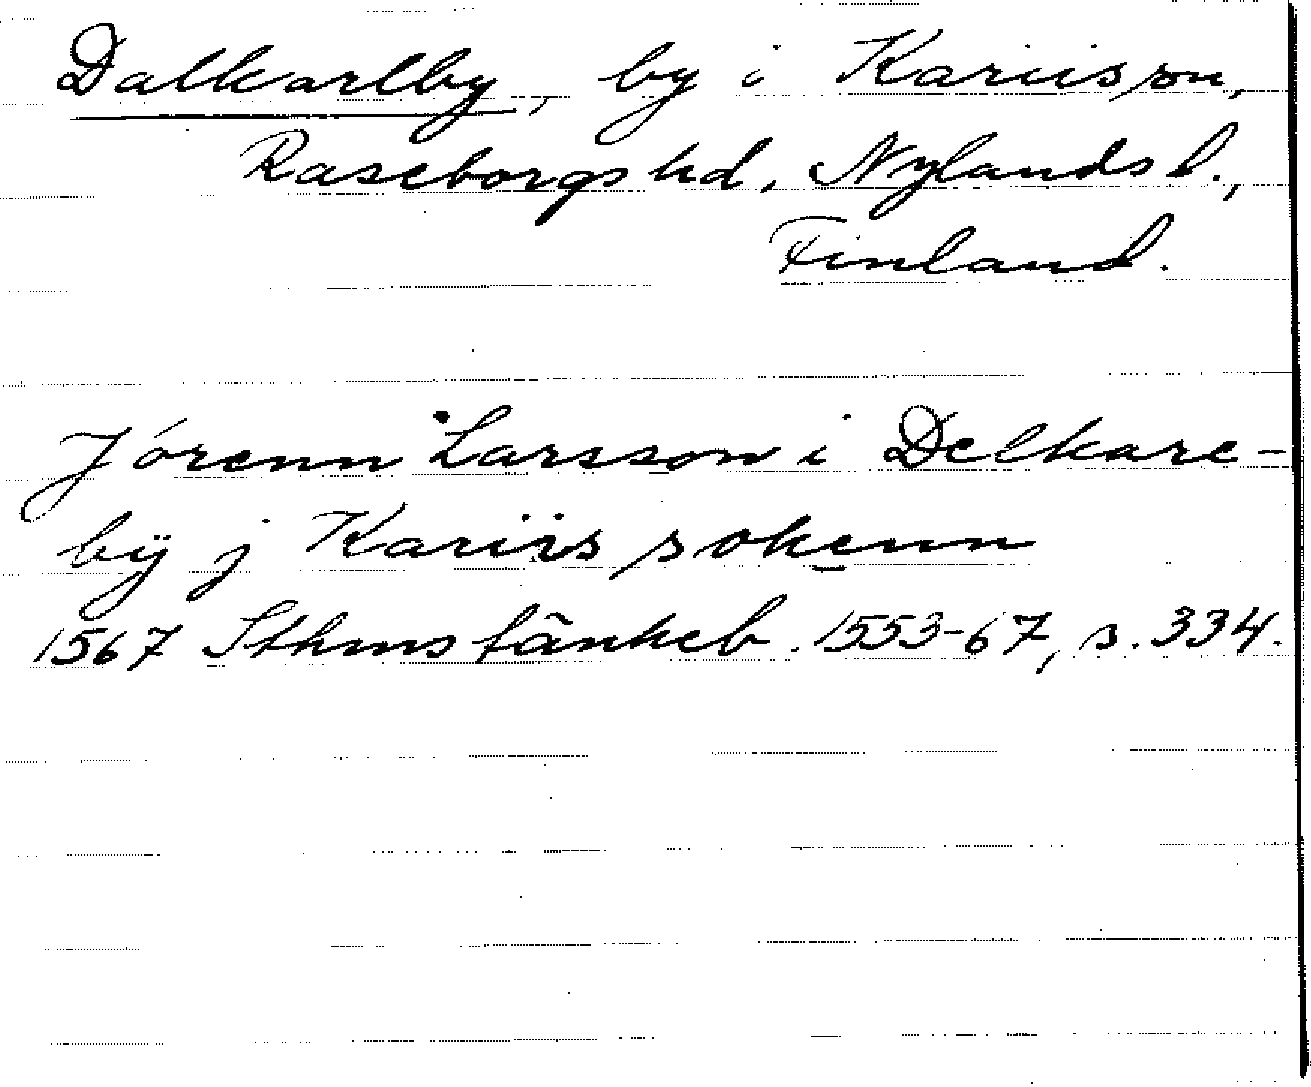 Dalkarlby, by i Kariis sn,
Raseborgs hd, Nylands l.,
Finland.
Jórenn Larsson i Delkare-
bÿ j Kariis sokenn
1567 Sthms tänkeb. 1553-67, s. 334.